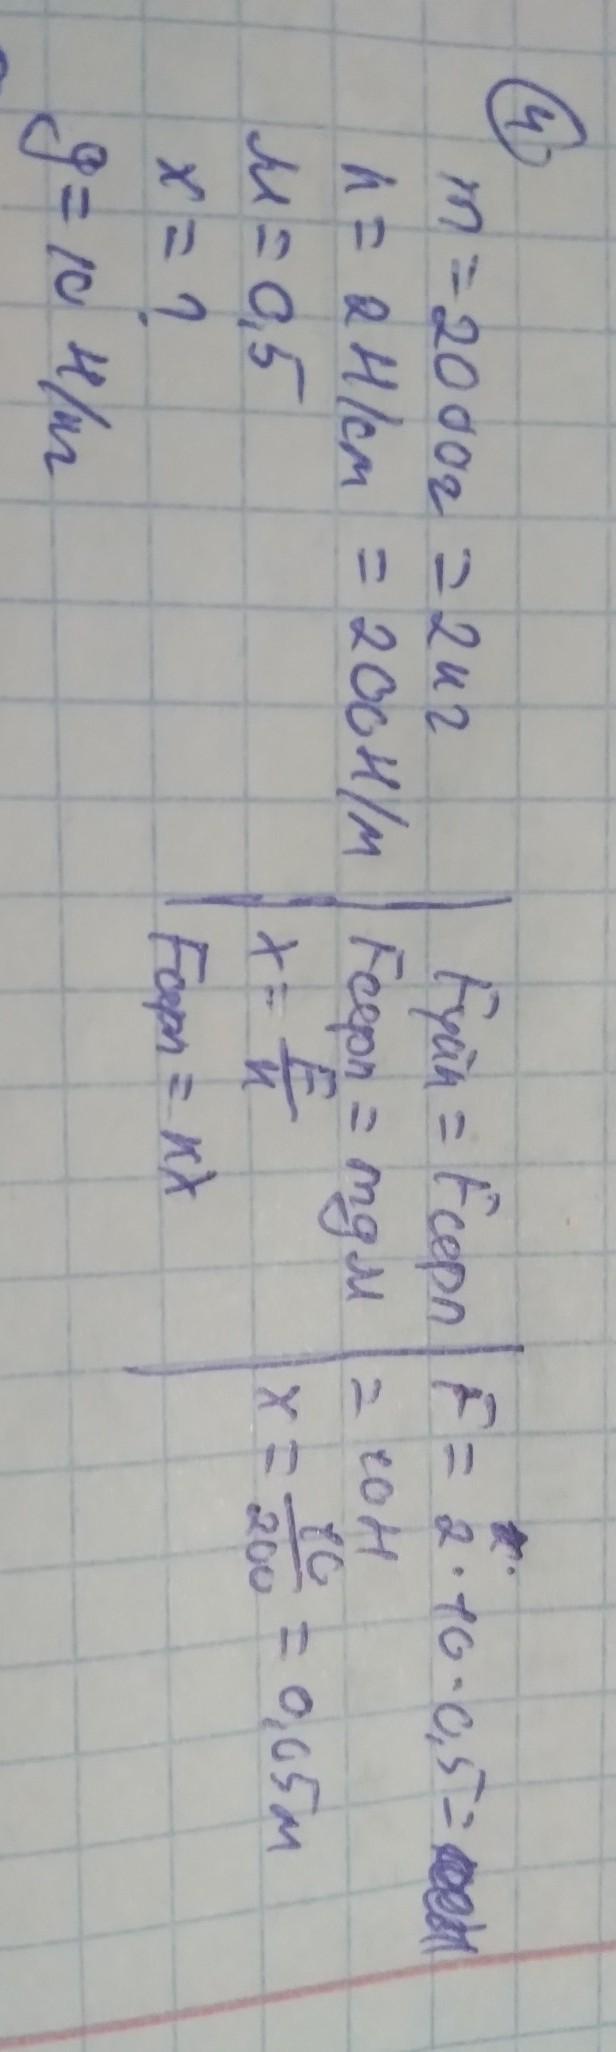 4
m = 2000г = 2кг
k = 2 Н/см = 200Н/м
μ = 0,5
x = ?
g = 10 Н/кг
Fуйк = Fсерп
Fсерп = mgμ
x = F/к
Fсерп = кx
F = 2 · 10 · 0,5 =
= 10Н
x = 10/200 = 0,05м